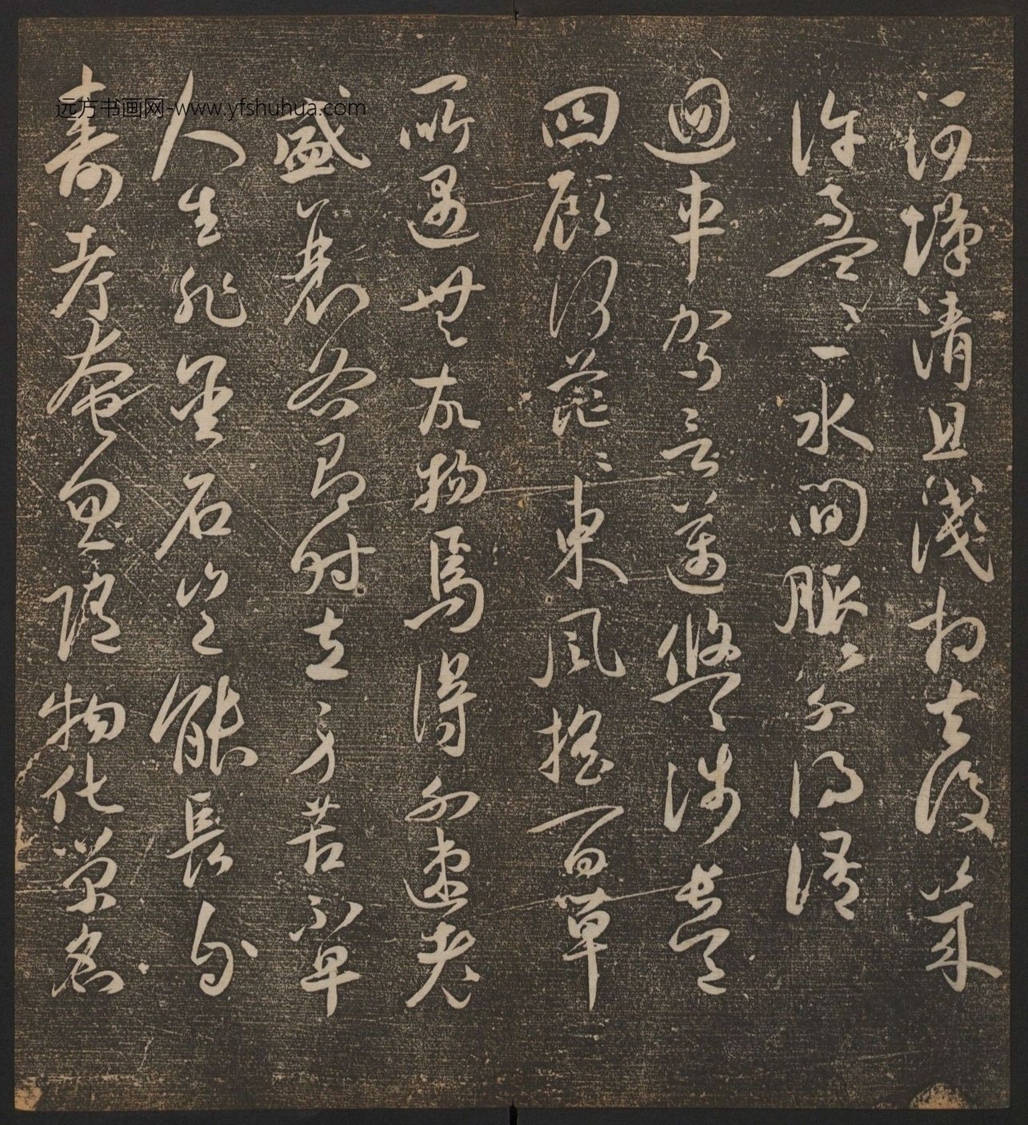 河漢清且淺相去復幾
許盈〻一水間脈〻不得語
迴車駕言邁悠〻涉長道
四顧何茫〻東風搖百草
所遇無故物焉得不速老
盛衰各有時立身苦不早
人生非金石豈能長
壽考奄忽隨物化榮名
远方书画网-www.yfshuhua.com